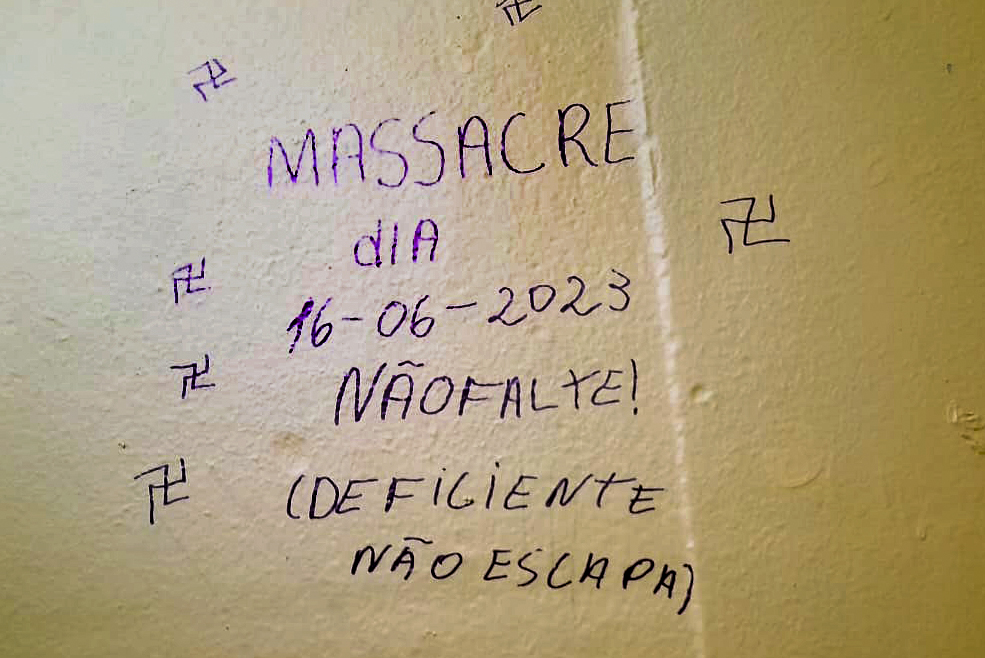 MASSACRE
dIA
16-06-2023
NÃOFALTE!
(DEFICIENTE
NÃO ESCAPA)